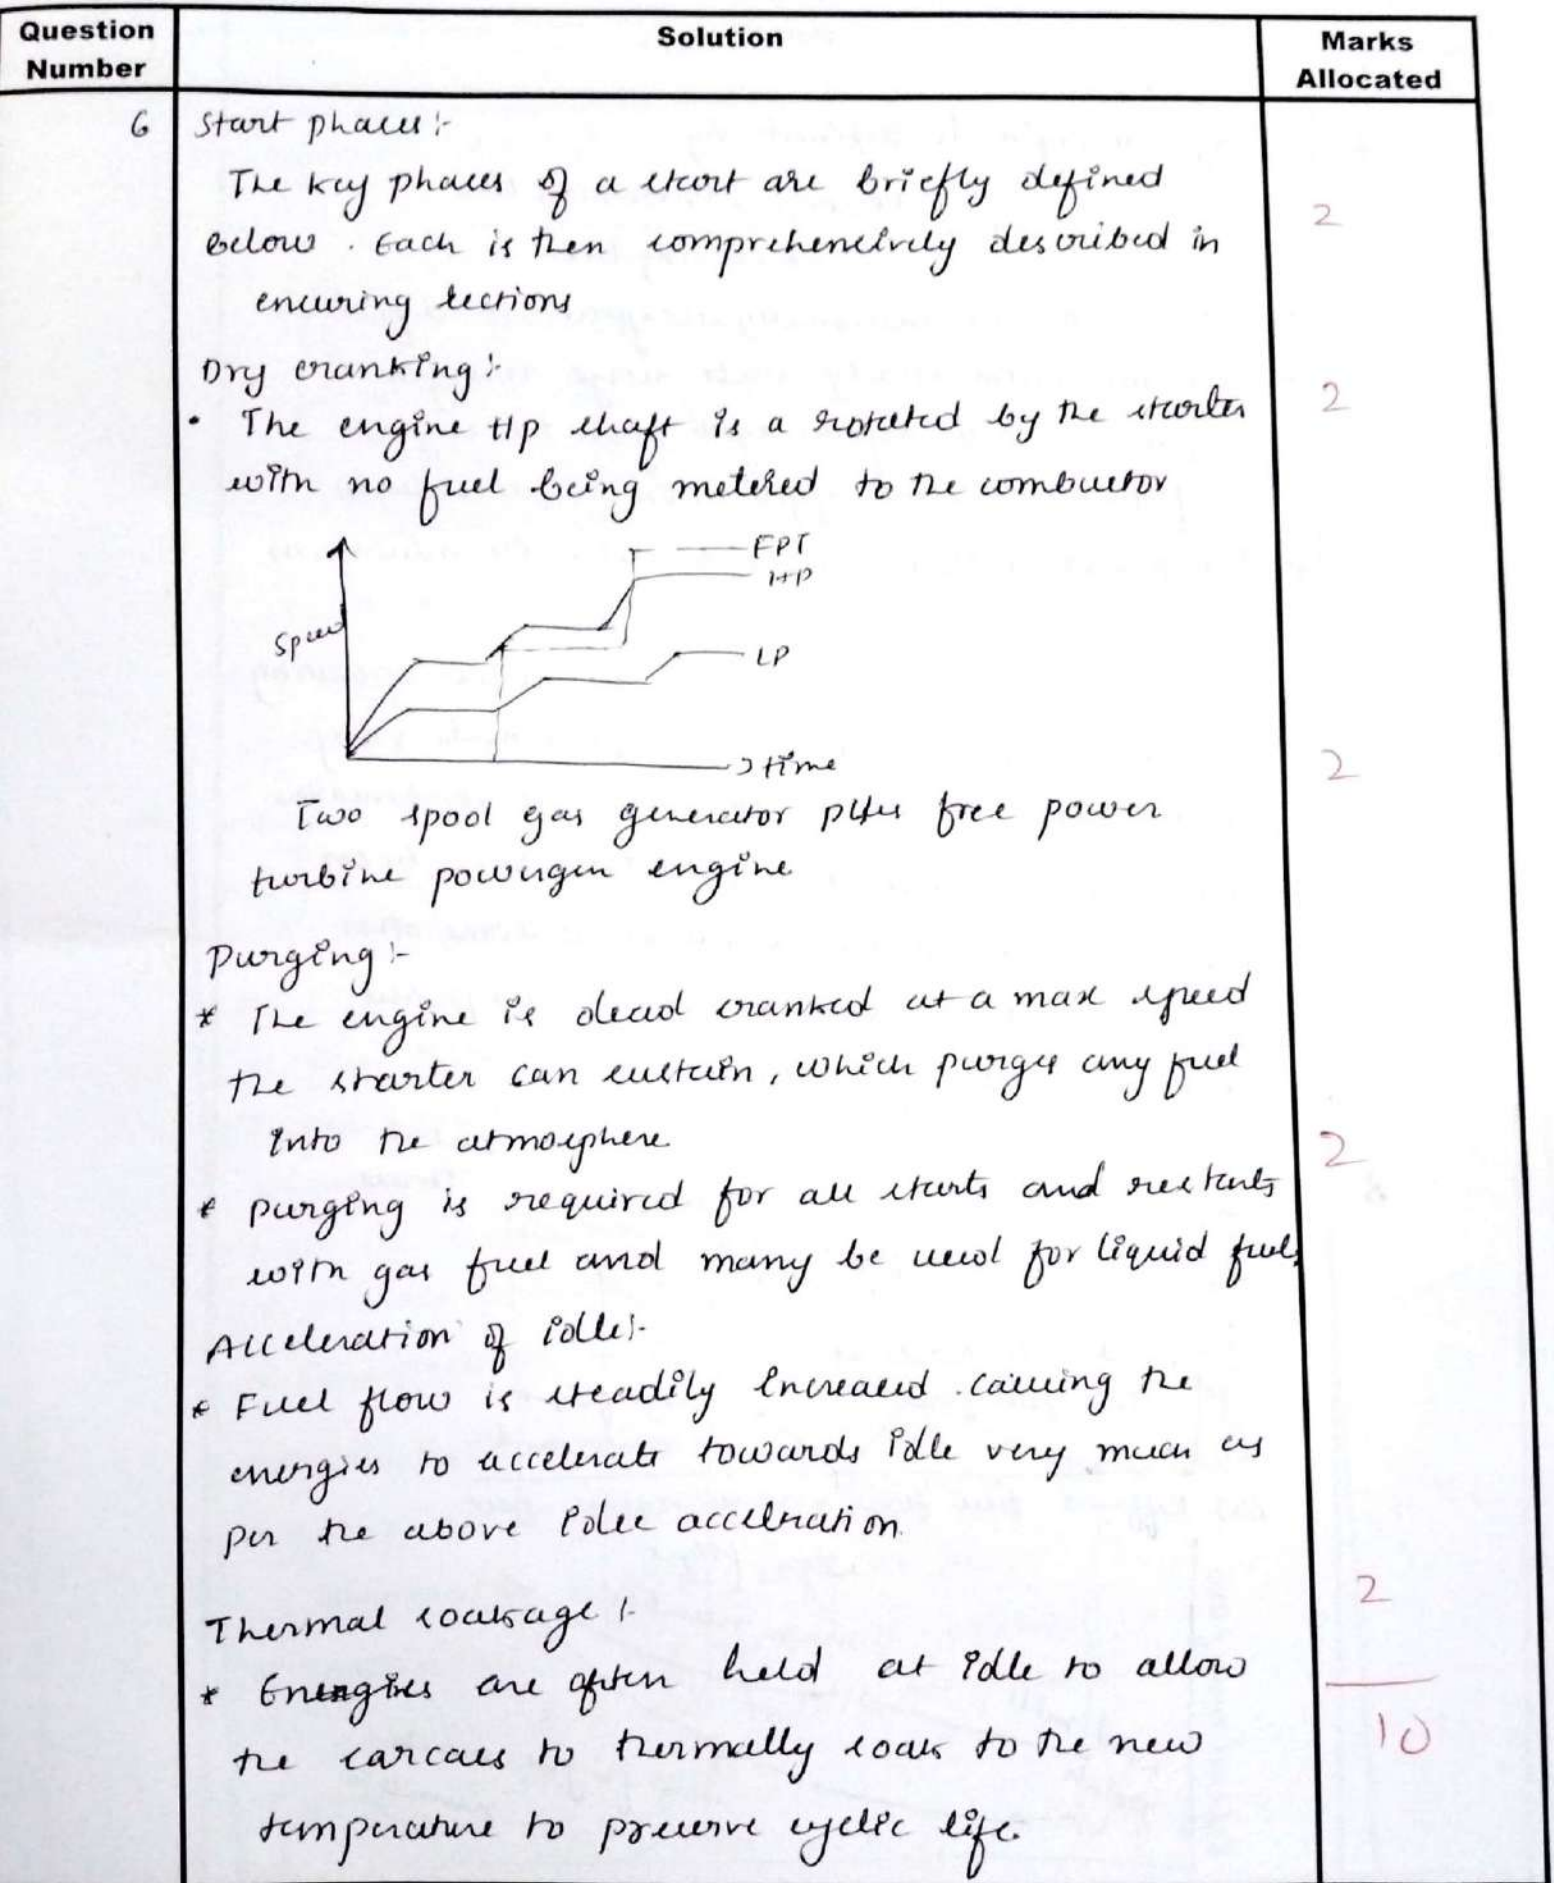 Question Number Solution Marks Allocated
6 Start phases:-
The key phases of a start are briefly defined
below. Each is then comprehensively described in 2
ensuring sections
Dry cranking:-
• The engine HP shaft is a rotated by the starter 2
with no fuel being metered to the combustor
FPT
HP
Speed
LP
time
2
Two spool gas generator plus free power
turbine powergen engine
Purging:-
* The engine is dead cranked at a max speed
the starter can sustain, which purges any fuel
into the atmosphere
2
* purging is required for all starts and restarts
with gas fuel and many be used for liquid fuel.
Acceleration of idle:-
* Fuel flow is steadily increased. causing the
energies to accelerate towards idle very much as
per the above idle accelration.
2
Thermal soakage:-
* Energies are often held at idle to allow
the carcass to thermally soak to the new
10
temperature to preserve cyclic life.